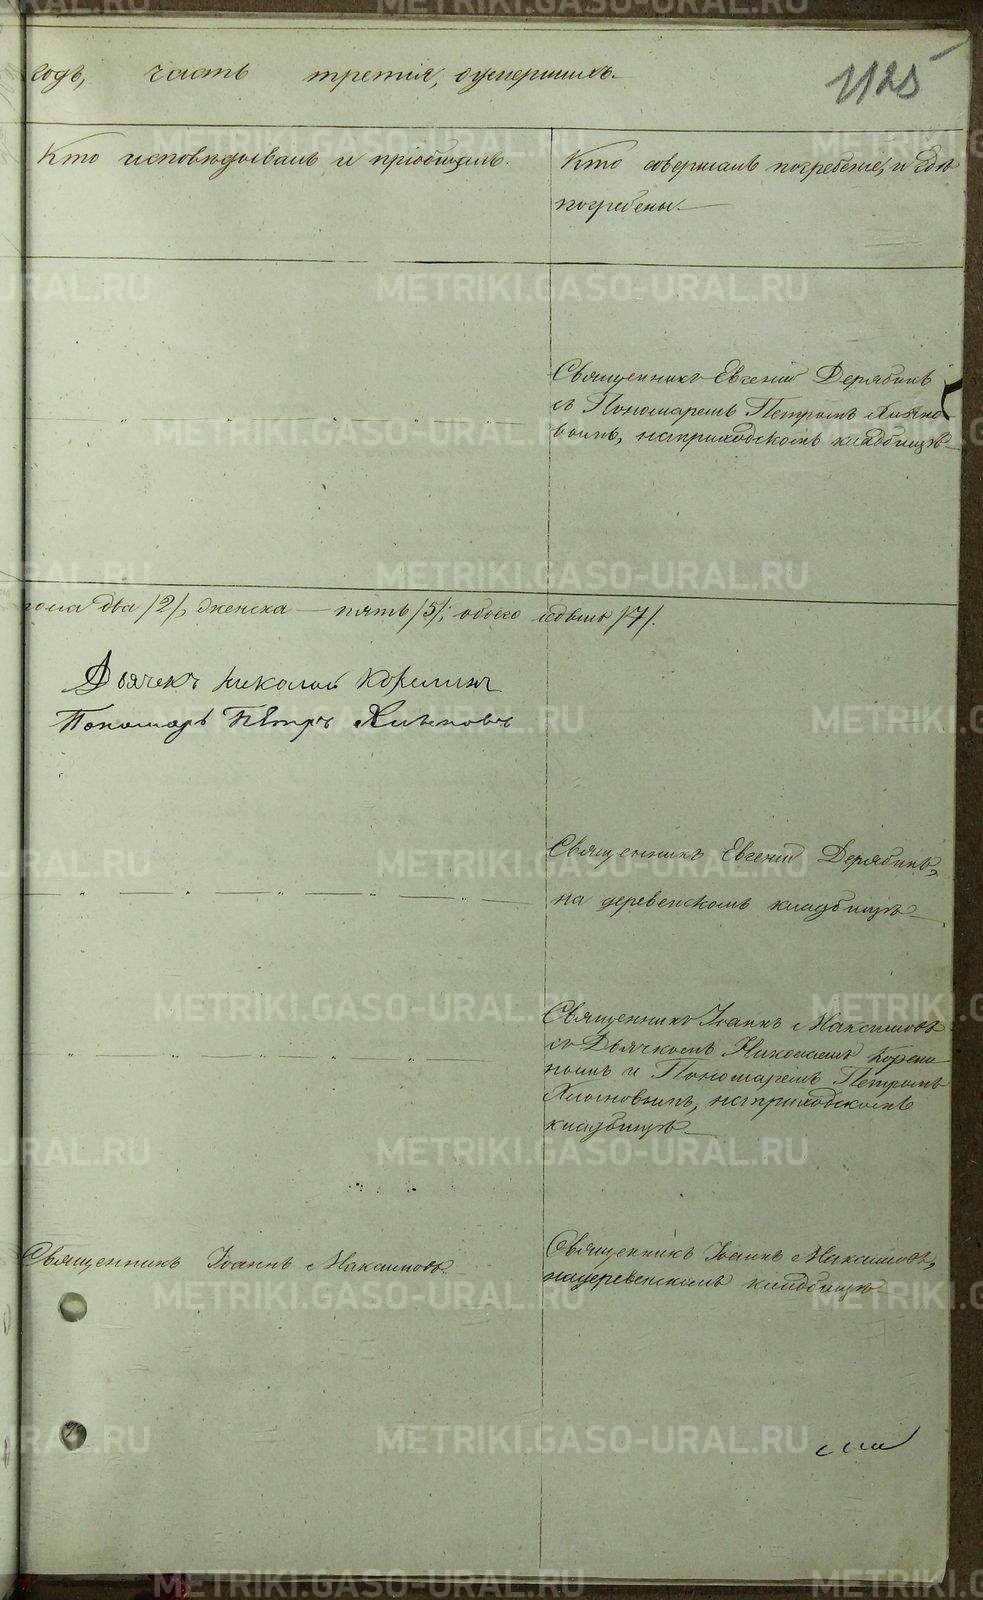 годъ, часть третія, о умершихъ.
1125
Кто исповѣдывалъ и пріобщалъ.
Кто совершалъ погребеніе, и гдѣ
погребены.
Священникъ Евгеній Дерябинъ
съ Пономаремъ Петромъ Хионо-
вымъ, на приходскомъ кладбищѣ
два /2/, женска — пять /5/, обоего седмь /7/.
Дьячекъ Николай Корелинъ
Пономарь Петръ Хионовъ
Священникъ Евгеній Дерябинъ,
на деревенскомъ кладбищѣ
Священникъ Іоаннъ Максимовъ
съ Дьячкомъ Николаемъ Корели-
нымъ и Пономаремъ Петромъ
Хионовымъ, на приходскомъ
кладбищѣ
Священникъ Іоаннъ Максимовъ.
Священникъ Іоаннъ Максимовъ,
на деревенскомъ кладбищѣ
METRIKI.GASO-URAL.RU